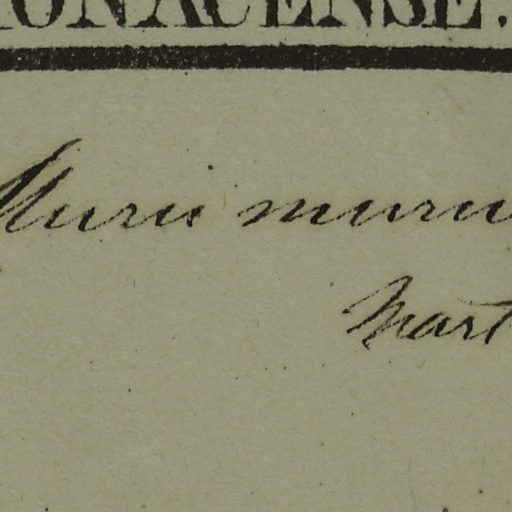 ONACENSE.
Muru muru
Mart